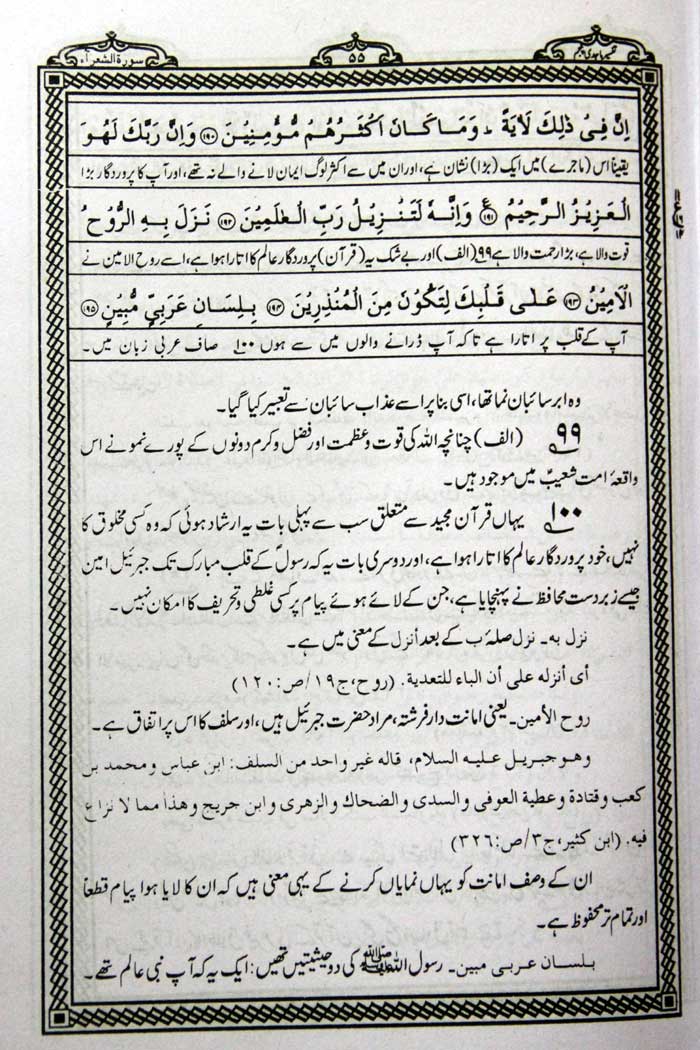 تفسیر ماجدی پنجم
۵۵
سورة الشعراء
اِنَّ فِیْ ذٰلِكَ لَاٰیَةً ؕ وَمَا كَانَ اَكْثَرُهُمْ مُّؤْمِنِیْنَ ﴿۱۹۰﴾ وَاِنَّ رَبَّكَ لَهُوَ
یقیناً اس (ماجرے) میں ایک (بڑا) نشان ہے، اور ان میں سے اکثر لوگ ایمان لانے والے نہ تھے، اور آپ کا پروردگار بڑا
الْعَزِیْزُ الرَّحِیْمُ ﴿۱۹۱﴾ وَاِنَّهٗ لَتَنْزِیْلُ رَبِّ الْعٰلَمِیْنَ ﴿۱۹۲﴾ نَزَلَ بِهِ الرُّوْحُ
قوت والا ہے، بڑا رحمت والا ہے ۹۹ (الف) اور بے شک یہ (قرآن) پروردگار عالم کا اتارا ہوا ہے، اسے روح الامین نے
الْاَمِیْنُ ﴿۱۹۳﴾ عَلٰی قَلْبِكَ لِتَكُوْنَ مِنَ الْمُنْذِرِیْنَ ﴿۱۹۴﴾ بِلِسَانٍ عَرَبِیٍّ مُّبِیْنٍ ﴿۱۹۵﴾
آپ کے قلب پر اتارا ہے تاکہ آپ ڈرانے والوں میں سے ہوں ۱۰۰ صاف عربی زبان میں۔
وہ ابر سائبان نما تھا، اسی بنا پر اسے عذاب سائبان سے تعبیر کیا گیا۔
۹۹ (الف) چنانچہ اللہ کی قوت و عظمت اور فضل و کرم دونوں کے پورے نمونے اس
واقعۂ امت شعیبؑ میں موجود ہیں۔
۱۰۰ یہاں قرآن مجید سے متعلق سب سے پہلی بات یہ ارشاد ہوئی کہ وہ کسی مخلوق کا
نہیں، خود پروردگار عالم کا اتارا ہوا ہے، اور دوسری بات یہ کہ رسولؐ کے قلب مبارک تک جبرئیل امین
جیسے زبردست محافظ نے پہنچایا ہے، جن کے لائے ہوئے پیام پر کسی غلطی و تحریف کا امکان نہیں۔
نزل به۔ نزل صلۂ ب کے بعد أنزل کے معنی میں ہے۔
أی أنزله علی أن الباء للتعدیة. (روح، ج۱۹/ص:۱۲۰)
روح الأمین۔ یعنی امانت دار فرشتہ، مراد حضرت جبرئیل ہیں، اور سلف کا اس پر اتفاق ہے۔
وهو جبریل علیه السلام، قاله غیر واحد من السلف: ابن عباس ومحمد بن
كعب وقتادة وعطیة العوفی والسدی والضحاك والزهری وابن جریج وهذا مما لا نزاع
فیه. (ابن کثیر، ج۳/ص:۳۲۶)
ان کے وصف امانت کو یہاں نمایاں کرنے کے یہی معنی ہیں کہ ان کا لایا ہوا پیام قطعاً
اور تمام تر محفوظ ہے۔
بلسان عربی مبین۔ رسول اللہ ﷺ کی دو حیثیتیں تھیں: ایک یہ کہ آپ نبی عالم تھے۔